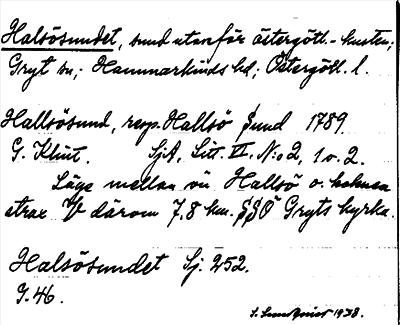 Halsösundet, sund utanför östergötl.-kusten;
Gryt sn; Hammarkinds hd; Östergötl. l.
Hallsösund, resp. Hallsö Sund 1789.
G. Klint. SjA, Litt. VI. N:o 2, 1 o. 2.
Läge mellan ön Hallsö o. holmen
strax V därom 7,8 km. SSO Gryts kyrka.
Halsösundet Sj. 252.
G. 46.
S. 1938.